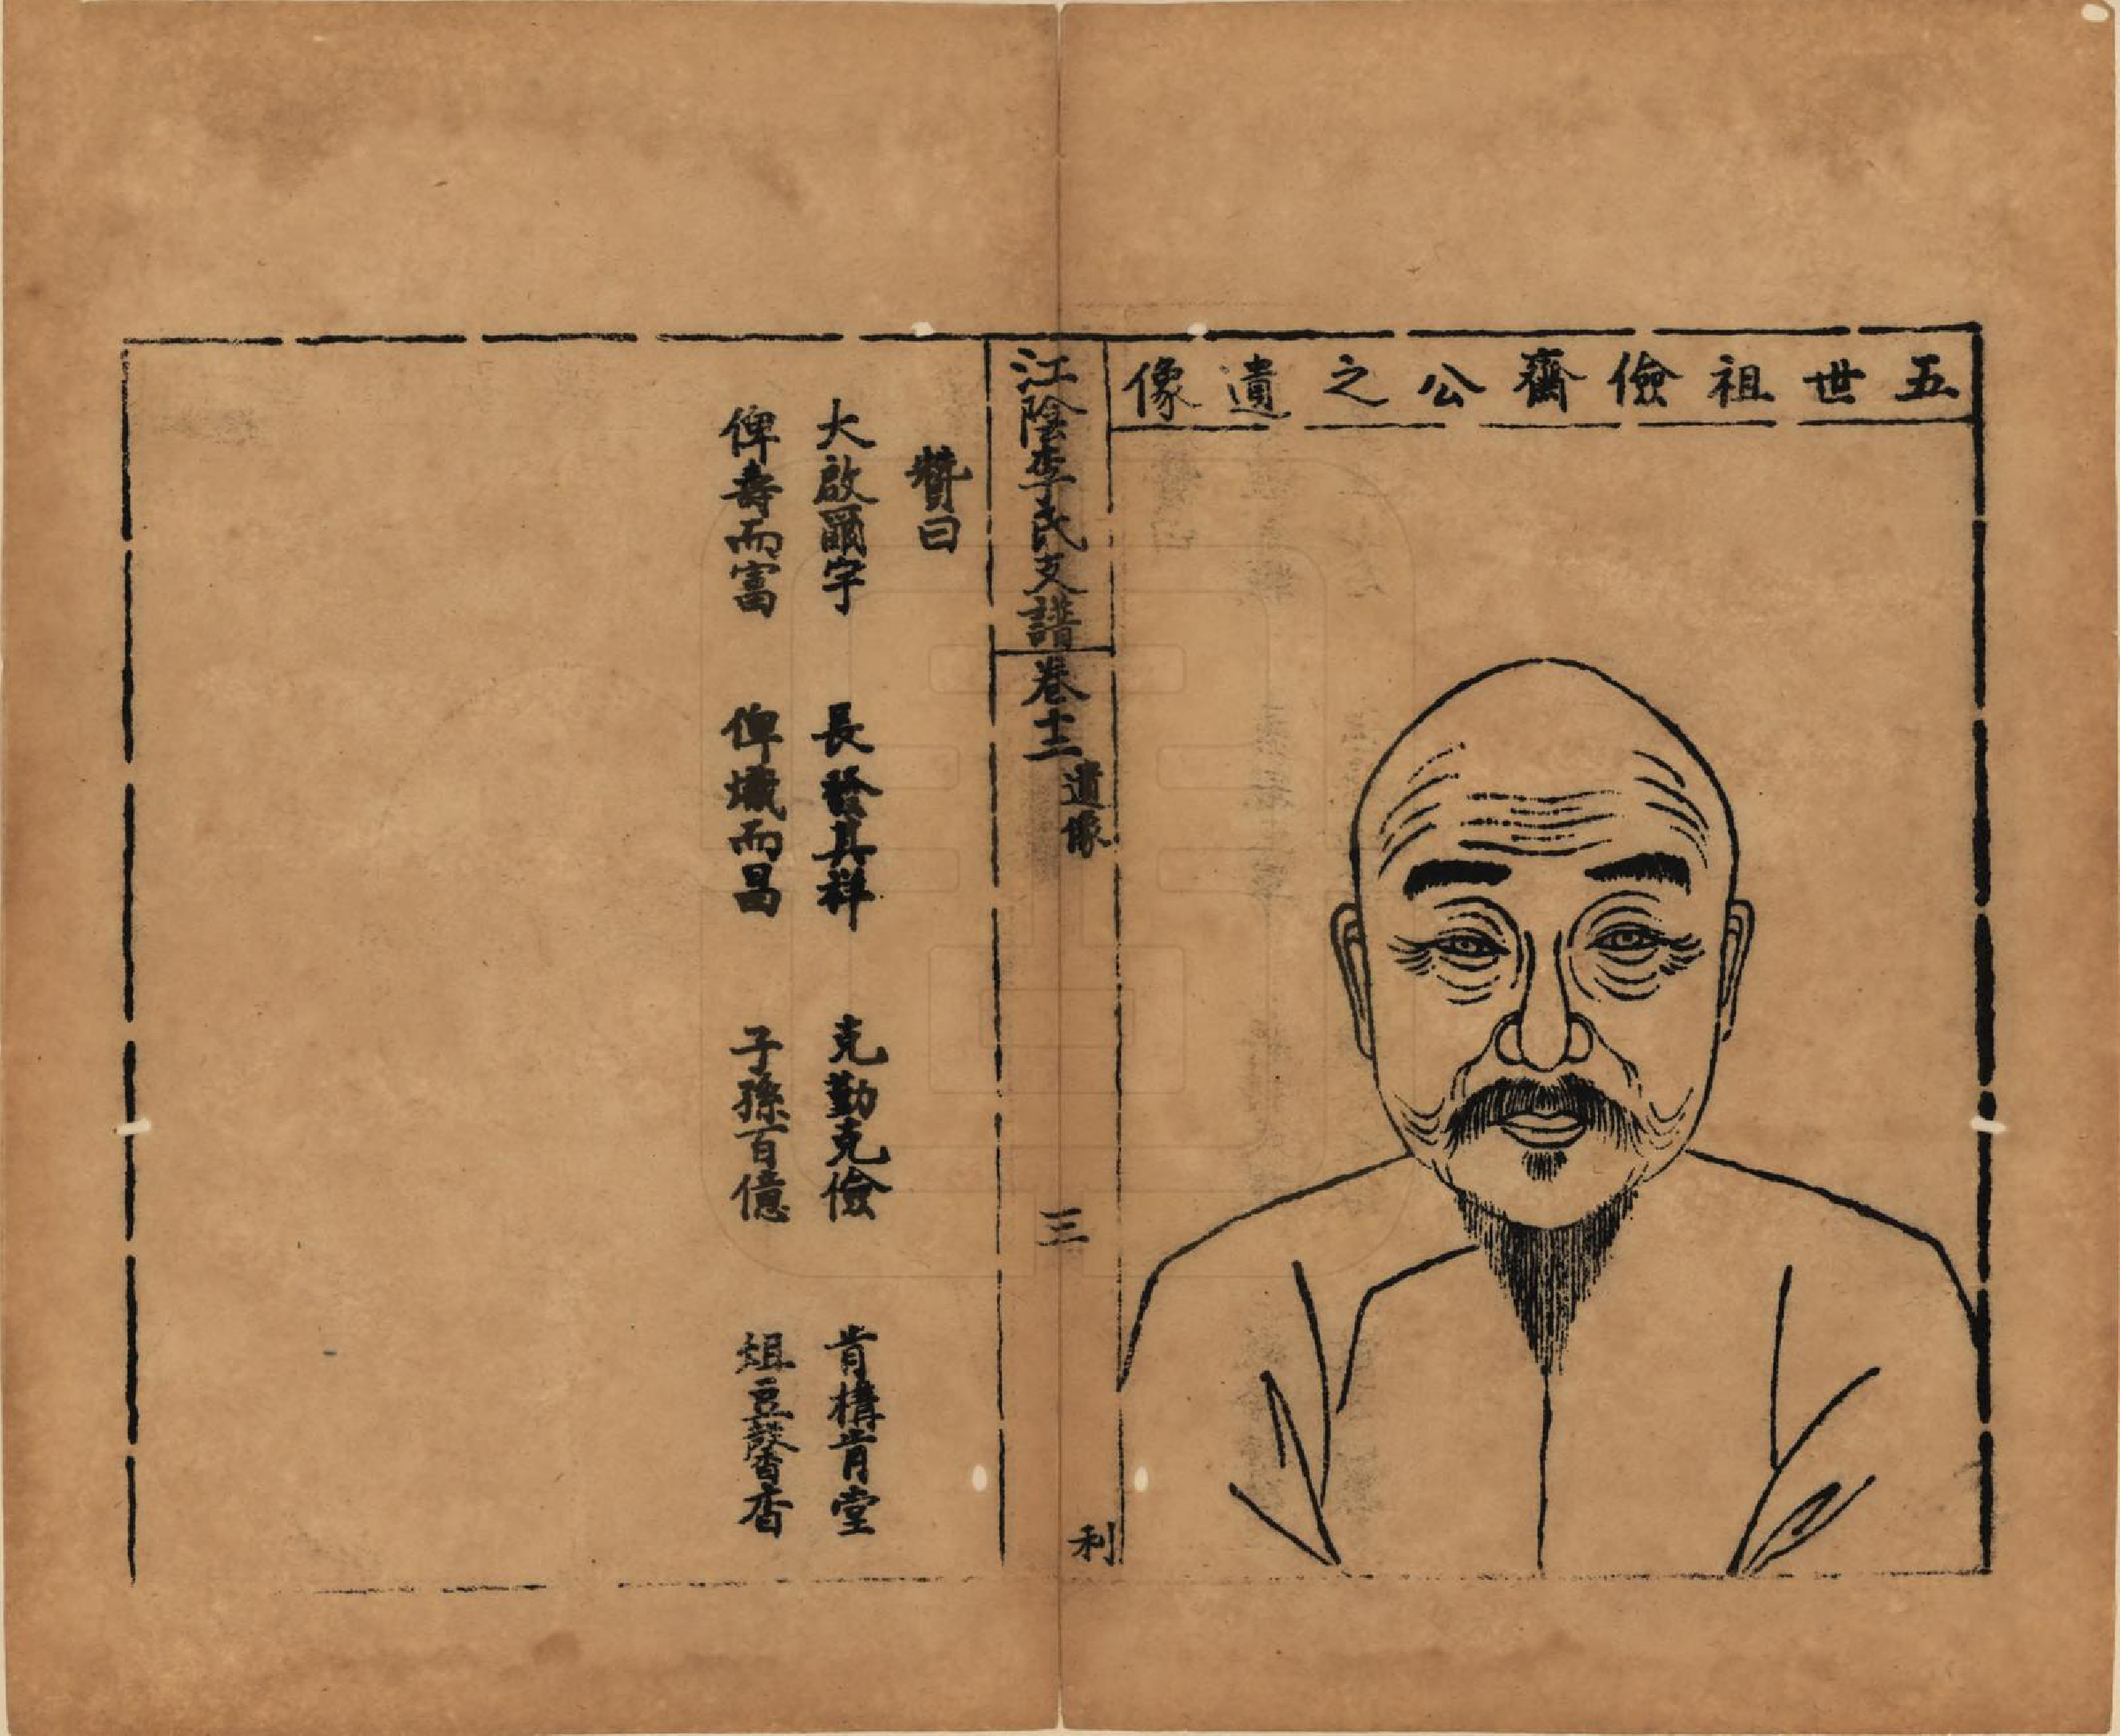 五世祖儉齋公之遺像
江陰李氏支譜
卷十二
遺像
三
利
贊曰
大啟爾宇　長發其祥　克勤克儉　肯構肯堂
俾壽而富　俾熾而昌　子孫百億　俎豆馨香